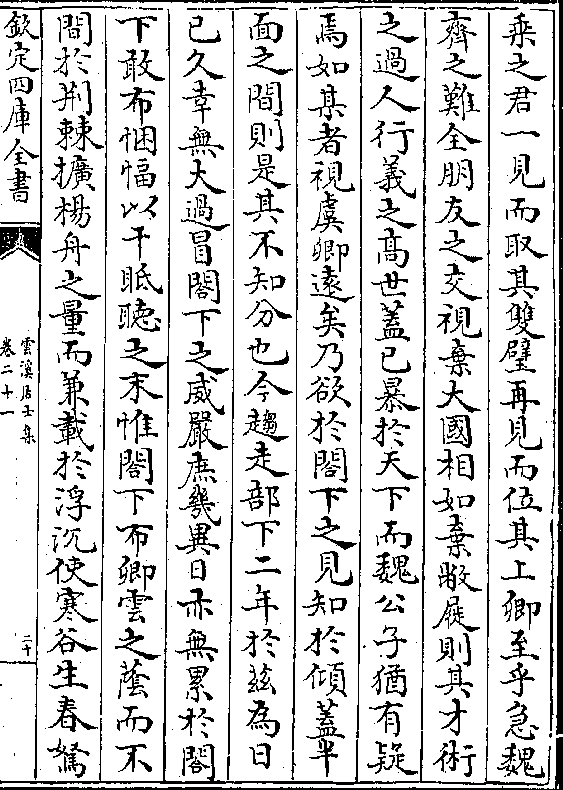 乗之君一見而取其雙璧再見而位其上卿至乎急魏
齊之難全朋友之交視棄大國相如棄敝屣則其才術
之過人行義之髙世蓋已暴於天下而魏公子猶有疑
焉如某者視虞卿逺矣乃欲於閣下之見知於傾蓋半
面之間則是其不知分也今趨走部下二年於兹為日
已久幸無大過冒閣下之威嚴庶幾異日亦無累於閣
下敢布悃愊以干眡聽之末惟閣下布卿雲之蔭而不
間於荆棘擴楊舟之量而兼載於浮沉使寒谷生春駑
欽定四庫全書
雲溪居士集
卷二十一
二十